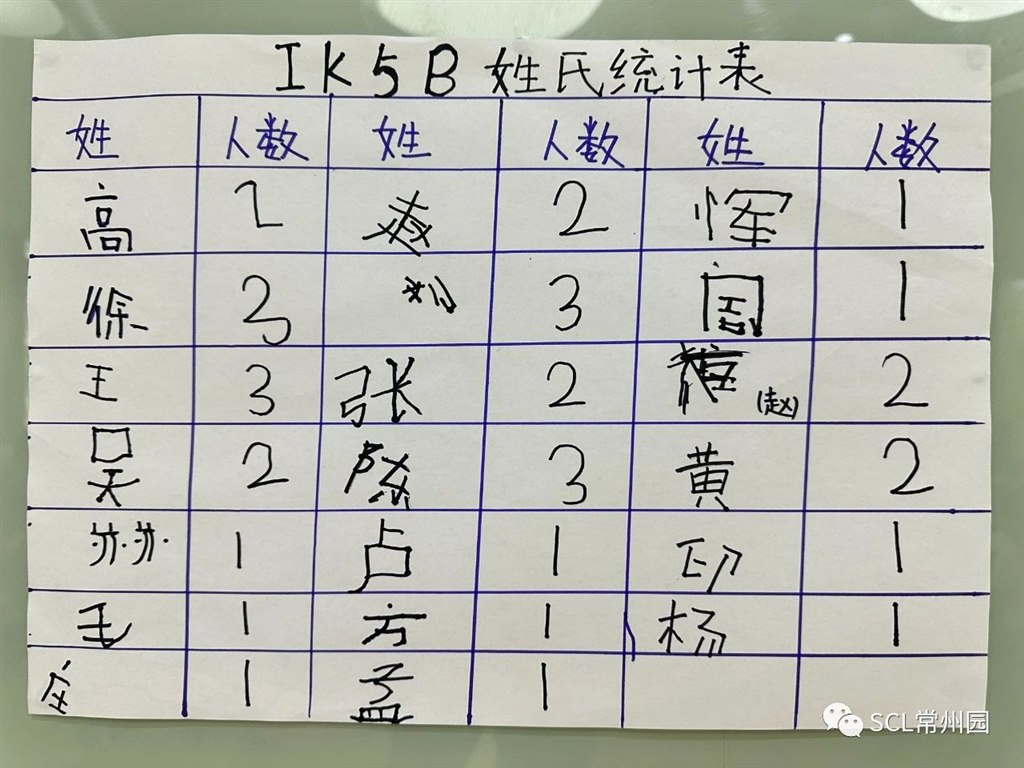 IK5B 姓氏统计表
姓 人数 姓 人数 姓 人数
高 2 2 恽 1
徐 3 刘 3 周 1
王 3 张 2 (赵) 2
吴 2 陈 3 黄 2
1 卢 1 印 1
毛 1 方 1 杨 1
庄 1 孟 1
SCL常州园